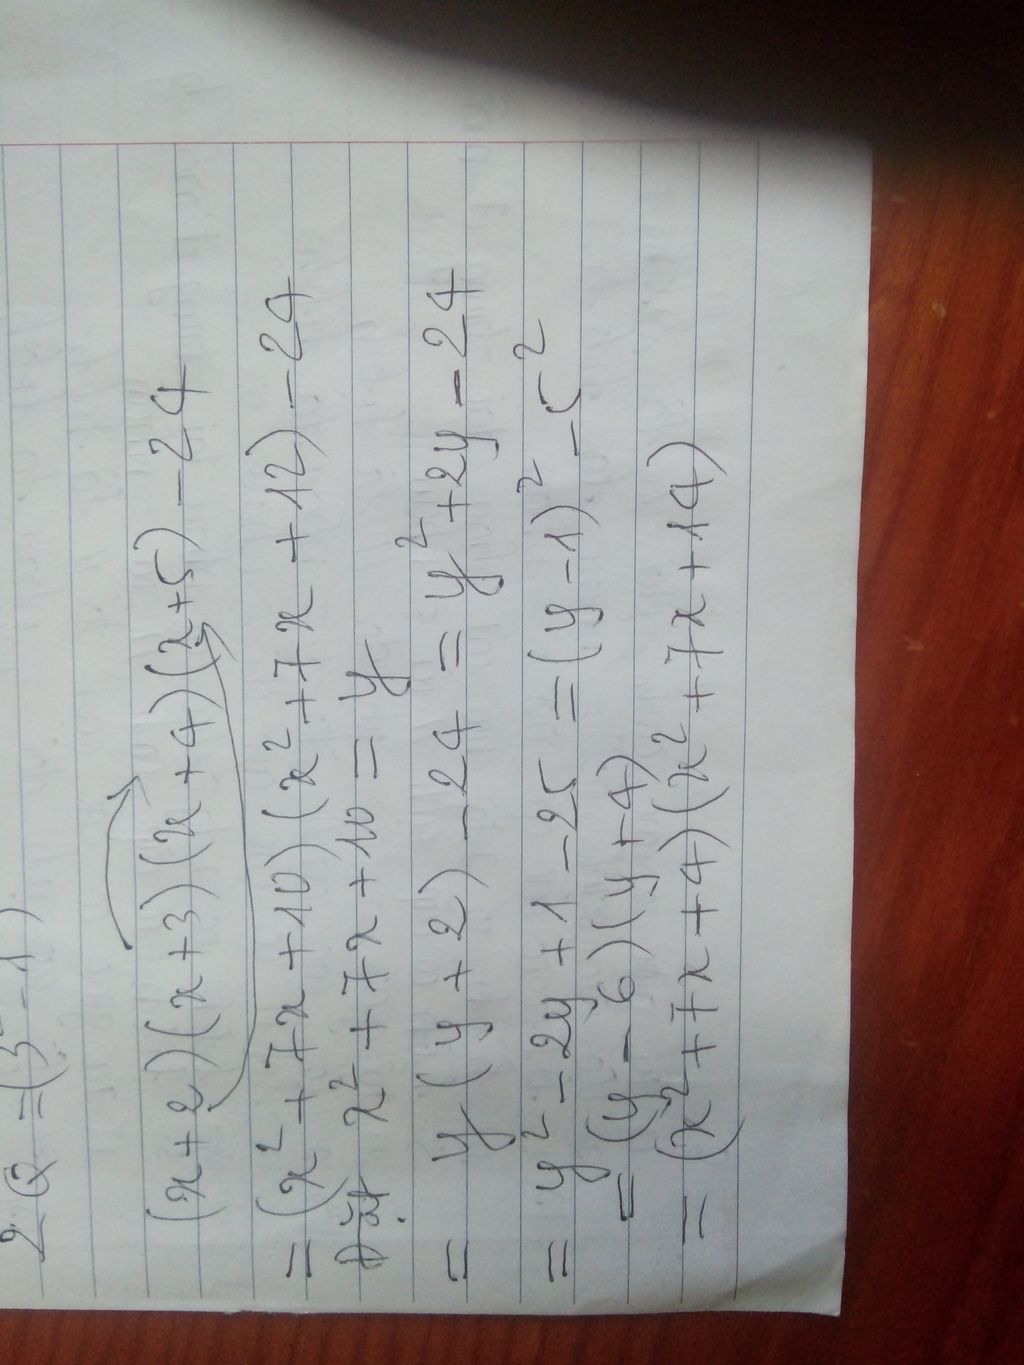 2Q = (3² - 1)
(x+2)(x+3)(x+4)(x+5) - 24
= (x² + 7x + 10)(x² + 7x + 12) - 24
Đặt x² + 7x + 10 = y
= y(y + 2) - 24 = y² + 2y - 24
= y² - 2y + 1 - 25 = (y - 1)² - 5²
= (y - 6)(y + 4)
= (x² + 7x + 4)(x² + 7x + 14)